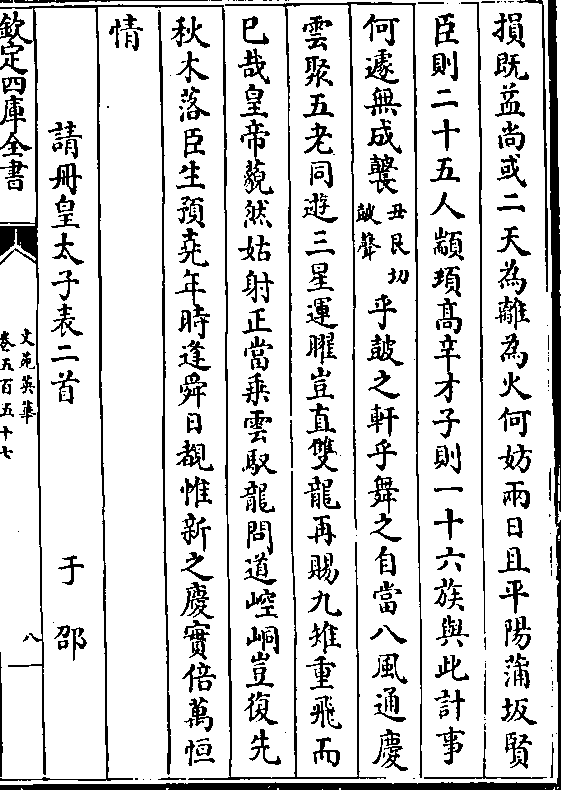 損既益尚或二天為離為火何妨兩日且平陽蒲坂賢
臣則二十五人顓頊髙辛才子則一十六族與此計事
何遽無成鼚丑艮切
鼓聲乎鼓之軒乎舞之自當八風通慶
雲聚五老同遊三星運曜豈直雙龍再賜九堆重飛而
已哉皇帝藐然姑射正當乘雲馭龍問道崆峒豈復先
秋木落臣生預堯年時逢舜日覩惟新之慶實倍萬恒
情
請冊皇太子表二首 于邵
欽定四庫全書
文苑英華
卷五百五十七
八